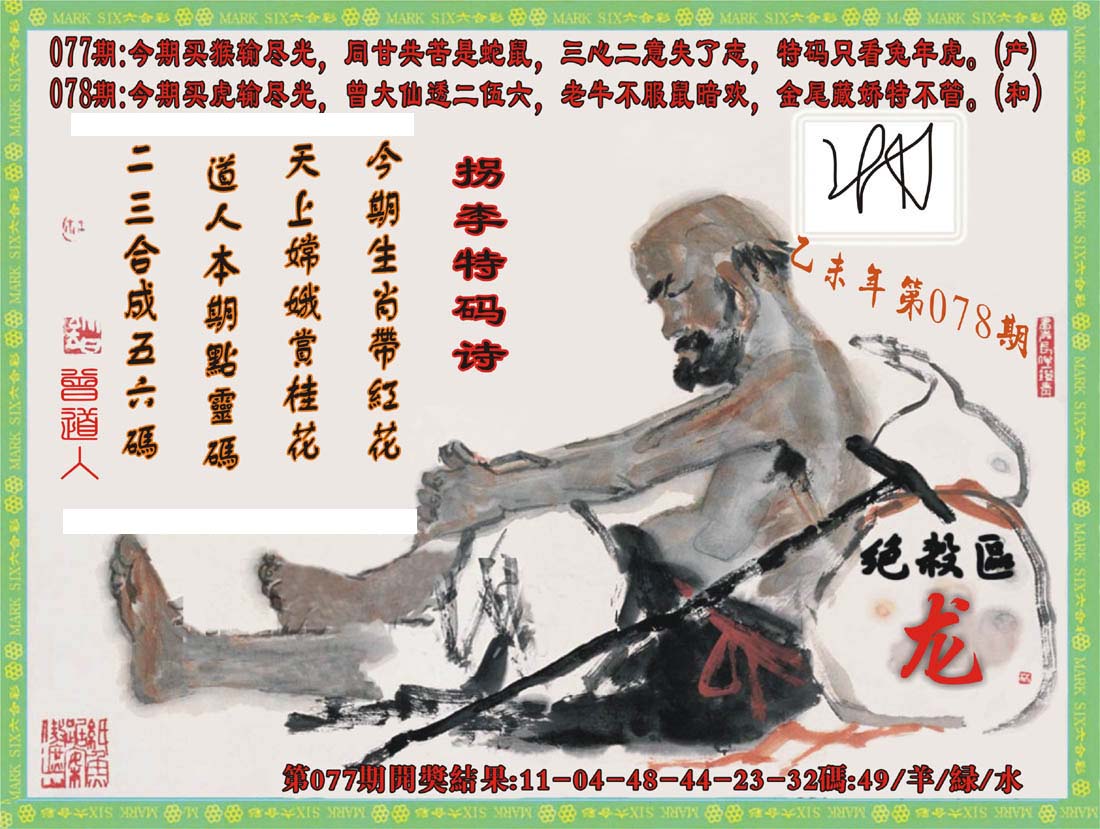 MARK SIX六合彩
077期:今期买猴输尽光，同甘共苦是蛇鼠，三心二意失了志，特码只看兔年虎。(产)
078期:今期买虎输尽光，曾大仙透二伍六，老牛不服鼠暗欢，金尾藏娇特不管。(和)
拐李特码诗
今期生肖帶紅花
天上嫦娥賞桂花
道人本期點靈碼
二三合成五六碼
曾道人
乙未年第078期
绝殺區
龙
第077期開獎結果:11-04-48-44-23-32碼:49/羊/緑/水